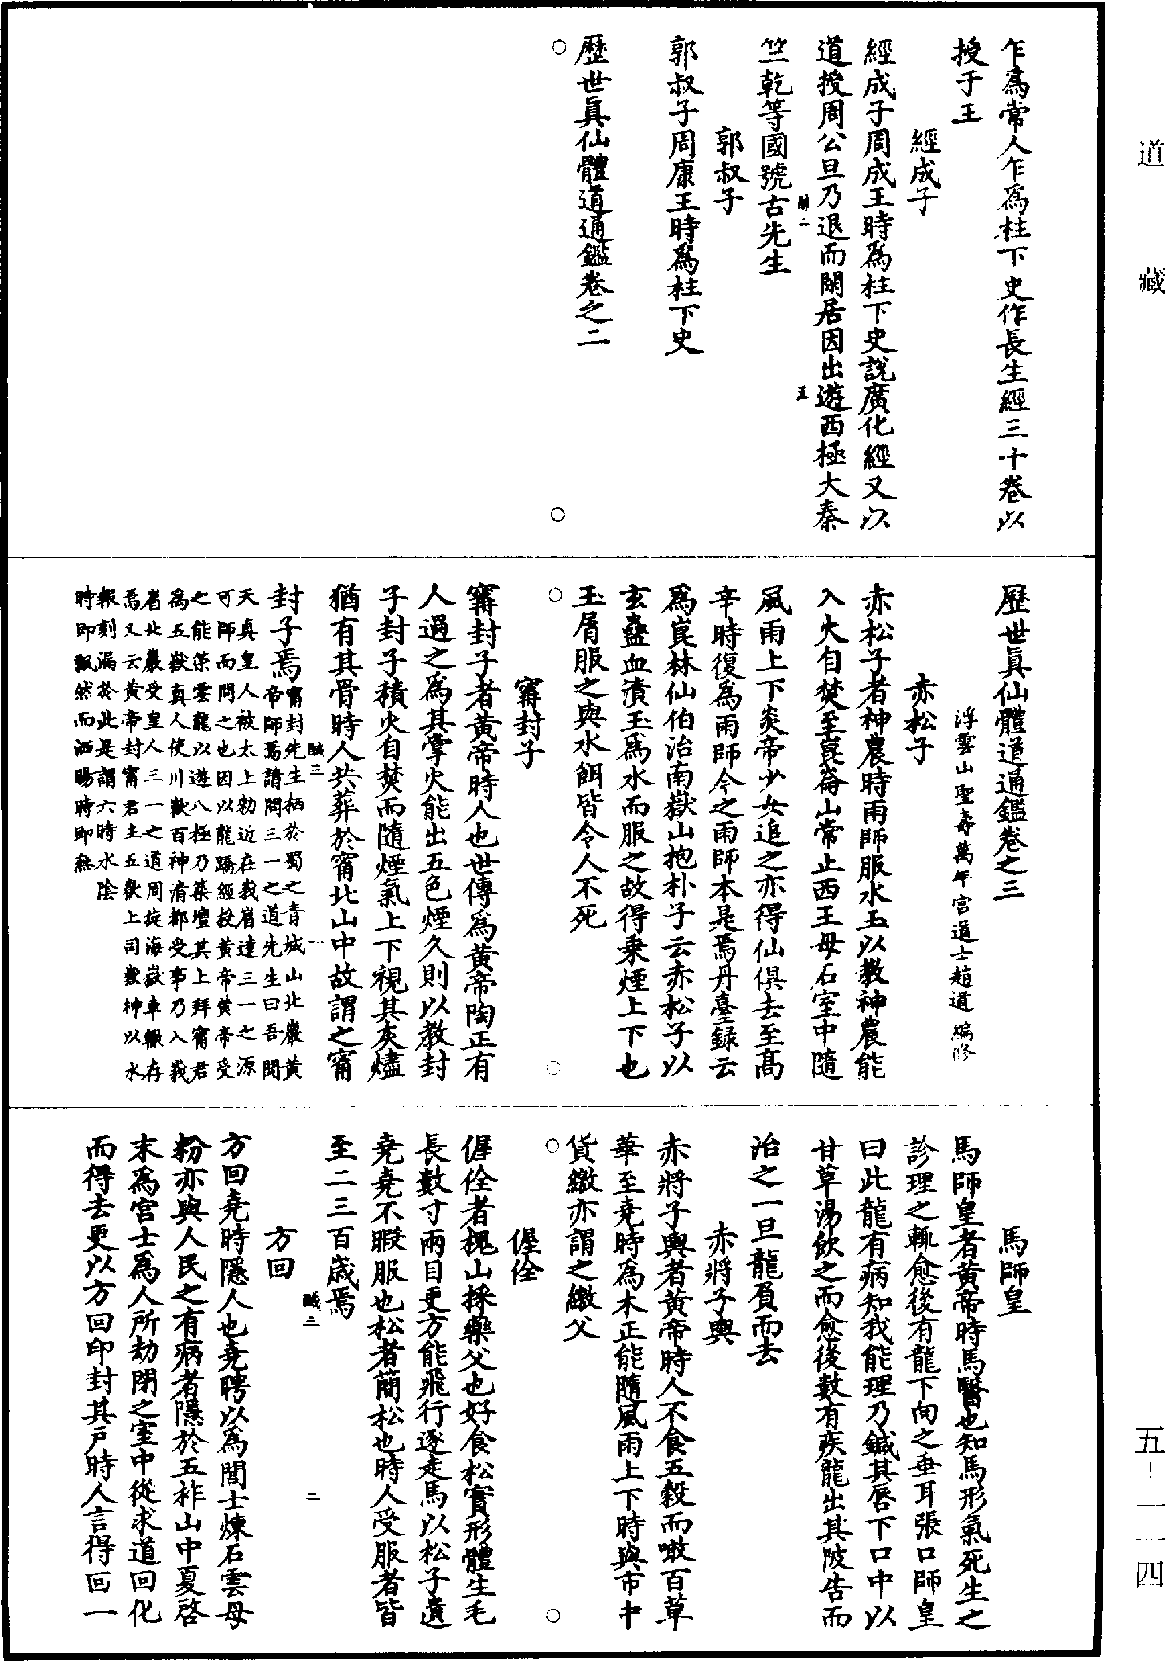 道藏
五-一一四
乍爲常人乍爲柱下史作長生經三十卷以
授于王
經成子
經成子周成王時爲柱下史說廣化經又以
道授周公旦乃退而閑居因出遊西極大秦
竺乾等國號古先生
郭叔子
郭叔子周康王時爲柱下史
歷世眞仙體道通鑑卷之二
歷世眞仙體道通鑑卷之三
浮雲山聖壽萬年宮道士趙道一編修
赤松子
赤松子者神農時雨師服水玉以教神農能
入火自焚至崑崙山常止西王母石室中隨
風雨上下炎帝少女追之亦得仙俱去至高
辛時復爲雨師今之雨師本是焉丹臺錄云
爲崑林仙伯治南嶽山抱朴子云赤松子以
玄蟲血漬玉爲水而服之故得乘煙上下也
玉屑服之與水餌皆令人不死
甯封子
甯封子者黃帝時人也世傳爲黃帝陶正有
人過之爲其掌火能出五色煙久則以教封
子封子積火自焚而隨煙氣上下視其灰燼
猶有其骨時人共葬於甯北山中故謂之甯
封子焉
甯封先生栖於蜀之青城山北巖黃
帝師焉請問三一之道先生曰吾聞
天真皇人被太上勑近在峩眉達三一之源
可師而問之也因以龍蹻經授黃帝黃帝受
之能策雲龍以遊八極乃築壇其上拜甯君
爲五嶽真人使川嶽百神清都受事乃入峩
眉北巖受皇人三一之道周旋海嶽車轍存
焉又云黃帝封甯君主五嶽上司嶽神以水
報刻漏於此是謂六時水陰
時即飄然而洒陽時即無
馬師皇
馬師皇者黃帝時馬醫也知馬形氣死生之
診理之輒愈後有龍下向之垂耳張口師皇
曰此龍有病知我能理乃鍼其唇下口中以
甘草湯飲之而愈後數有疾龍出其陂告而
治之一旦龍負而去
赤將子輿
赤將子輿者黃帝時人不食五穀而噉百草
華至堯時爲木正能隨風雨上下時與市中
貨繳亦謂之繳父
偓佺
偓佺者槐山採藥父也好食松實形體生毛
長數寸兩目更方能飛行逐走馬以松子遺
堯堯不暇服也松者簡松也時人受服者皆
至二三百歲焉
方回
方回堯時隱人也堯聘以爲閭士煉石雲母
粉亦與人民之有病者隱於五柞山中夏啓
末爲宮士爲人所劫閉之室中從求道回化
而得去更以方回印封其戶時人言得回一